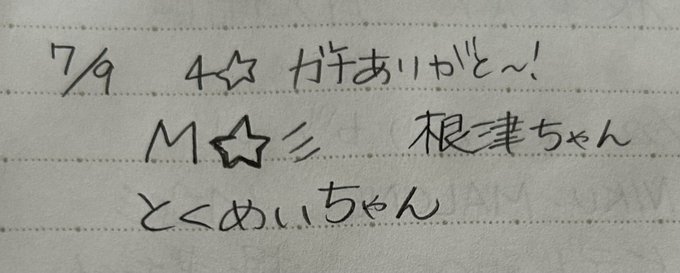 7/9 4☆ ガチありがと～!
M☆彡 根津ちゃん
とくめいちゃん